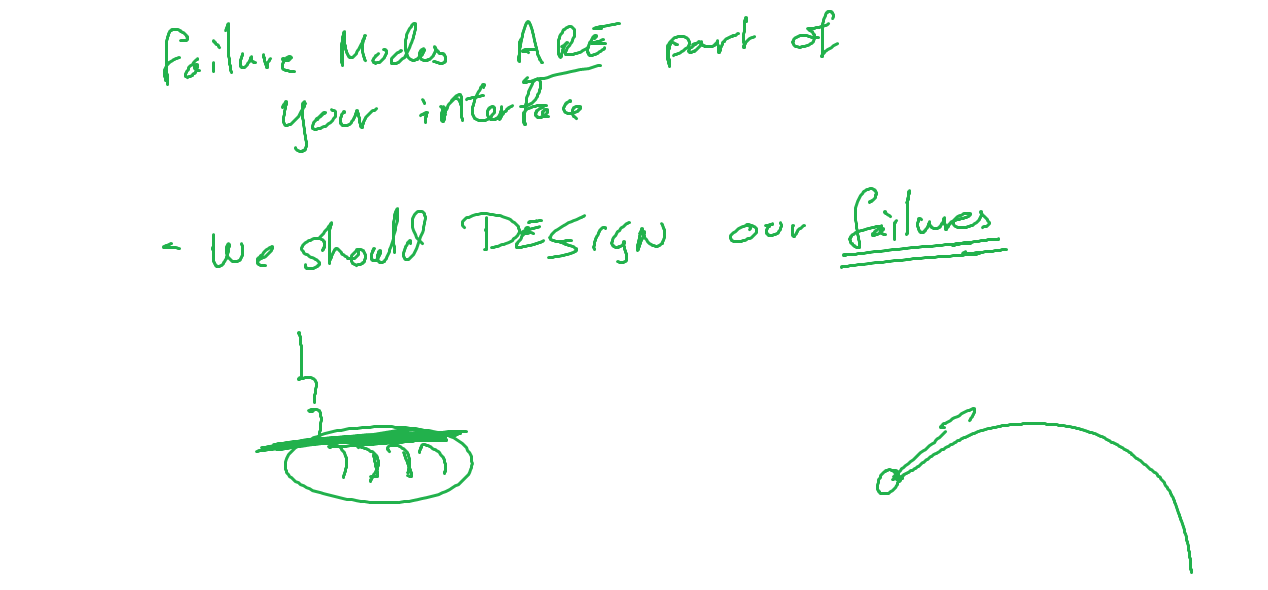 Failure Modes ARE part of
your interface
- We should DESIGN our failures